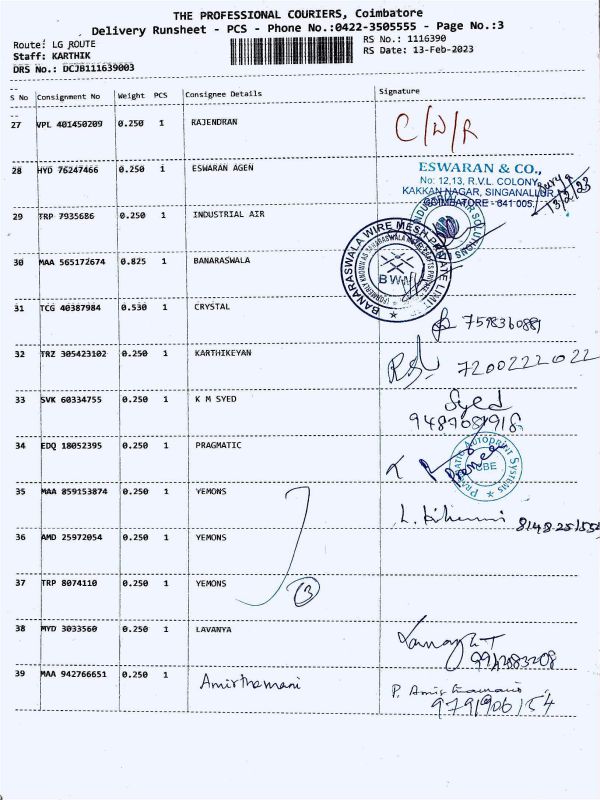 THE PROFESSIONAL COURIERS, Coimbatore
Delivery Runsheet - PCS - Phone No.:0422-3505555 - Page No.:3
Route: LG ROUTE RS No.: 1116390
Staff: KARTHIK RS Date: 13-Feb-2023
DRS No.: DCJB111639003
S No Consignment No Weight PCS Consignee Details Signature
27 VPL 401450209 0.250 1 RAJENDRAN C/D/R
28 HYD 76247466 0.250 1 ESWARAN AGEN
ESWARAN & CO.,
No: 12,13, R.V.L. COLONY,
KAKKAN NAGAR, SINGANALLUR,
COIMBATORE - 641 005.
13/2/23
29 TRP 7935686 0.250 1 INDUSTRIAL AIR
30 MAA 565172674 0.825 1 BANARASWALA
BANARASWALA WIRE MESH PRIVATE LIMITED
31 TCG 40387984 0.530 1 CRYSTAL 7598360889
32 TRZ 305423102 0.250 1 KARTHIKEYAN 7200222022
33 SVK 60334755 0.250 1 K M SYED Syed
9487081918
34 EDQ 18052395 1 0.250 PRAGMATIC
PRAGMATIC Autoprint Systems
CBE
35 MAA 859153874 0.250 1 YEMONS
36 AMD 25972054 0.250 1 YEMONS
37 TRP 8074110 0.250 1 YEMONS
38 MYD 3033560 0.250 1 LAVANYA
39 MAA 942766651 0.250 1 Amirthamani
9791906154